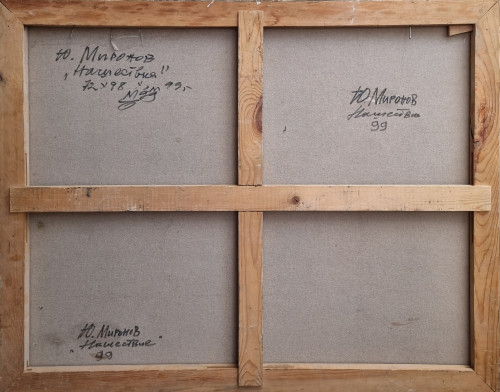 Ю. Миронов
„Нашествия"
72 х 98 99г
Ю. Миронов
Нашествие
99
Ю. Миронов
„Нашествие"
99